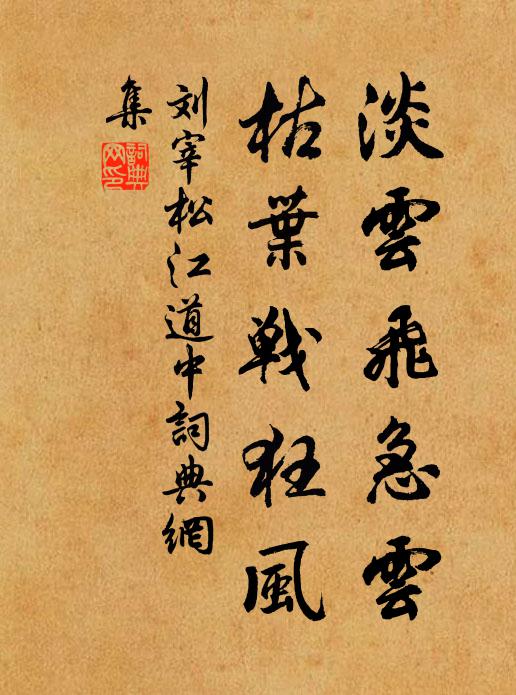 淡雲飛急雲
枯葉戰狂風
刘宰松江道中詞典網
集
詞典網印